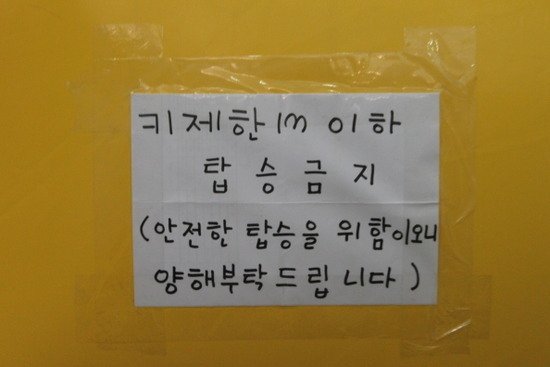 키제한 1m 이하
탑승금지
(안전한 탑승을 위함이오니
양해부탁드립니다)